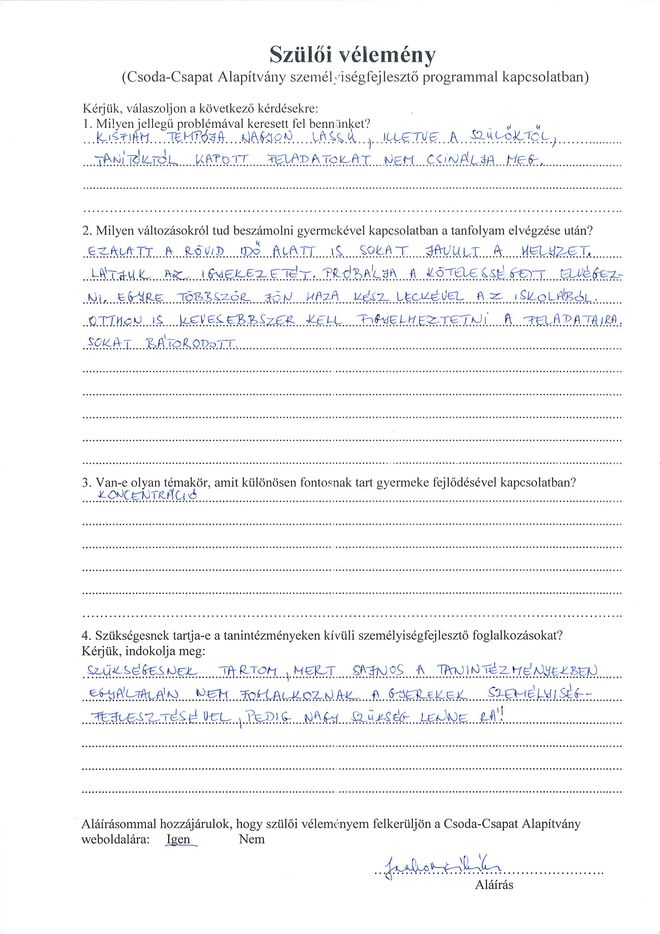 Szülői vélemény
(Csoda-Csapat Alapítvány személyiségfejlesztő programmal kapcsolatban)
Kérjük, válaszoljon a következő kérdésekre:
1. Milyen jellegű problémával keresett fel bennünket?
KISFIAM TEMPÓJA NAGYON LASSÚ, ILLETVE A SZÜLŐKTŐL,
TANÍTÓKTÓL KAPOTT FELADATOKAT NEM CSINÁLJA MEG.
2. Milyen változásokról tud beszámolni gyermekével kapcsolatban a tanfolyam elvégzése után?
EZALATT A RÖVID IDŐ ALATT IS SOKAT JAVULT A HELYZET.
LÁTJUK AZ IGYEKEZETÉT. PRÓBÁLJA A KÖTELESSÉGEIT ELVÉGEZ-
NI. EGYRE TÖBBSZÖR JÖN HAZA KÉSZ LECKÉVEL AZ ISKOLÁBÓL.
OTTHON IS KEVESEBBSZER KELL FIGYELMEZTETNI A FELADATAIRA.
SOKAT BÁTORODOTT.
3. Van-e olyan témakör, amit különösen fontosnak tart gyermeke fejlődésével kapcsolatban?
KONCENTRÁCIÓ
4. Szükségesnek tartja-e a tanintézményeken kívüli személyiségfejlesztő foglalkozásokat?
Kérjük, indokolja meg:
SZÜKSÉGESNEK TARTOM, MERT SAJNOS A TANINTÉZMÉNYEKBEN
EGYÁLTALÁN NEM FOGLALKOZNAK A GYEREKEK SZEMÉLYISÉG-
FEJLESZTÉSÉVEL, PEDIG NAGY SZÜKSÉG LENNE RÁ!
Aláírásommal hozzájárulok, hogy szülői véleményem felkerüljön a Csoda-Csapat Alapítvány
weboldalára: Igen Nem
Aláírás